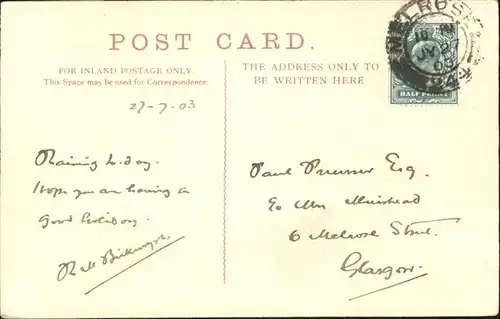 POST CARD.
FOR INLAND POSTAGE ONLY.
This Space may be used for Correspondence.
27-7-03
Raining to-day.
I hope you are having a
good holiday.
THE ADDRESS ONLY TO
BE WRITTEN HERE
MELROSE
03
HALF PENNY
Paul Esq.
c/o Mrs Muirhead
6 Melrose Street.
Glasgow.